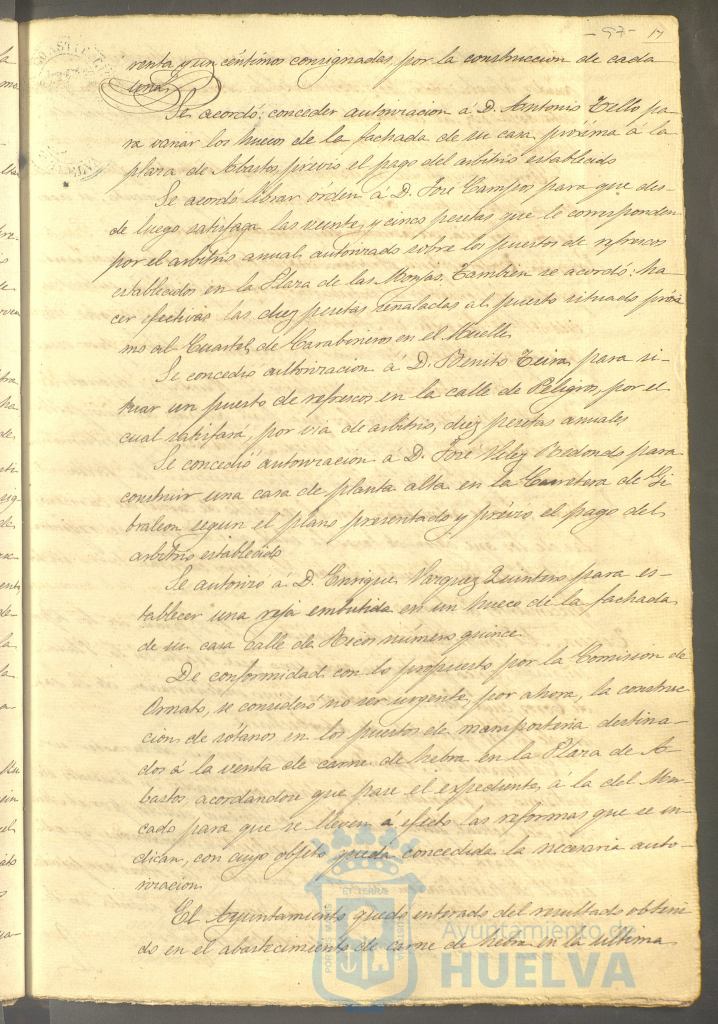 - 97 - 17
renta y un céntimos consignadas, por la construccion de cada
una.
Se acordó: conceder autorizacion á D. Antonio Tello pa-
ra variar los huecos de la fachada de su casa, próxima á la
plaza de Abastos, previo el pago del arbitrio establecido
Se acordó librar órden á D. José Campos, para que des-
de luego satisfaga las veinte y cinco pesetas que le corresponden
por el arbitrio anual, autorizado sobre los puestos de refrescos
establecidos en la Plaza de las Monjas. Tambien se acordó: ha-
cer efectivas las diez pesetas señaladas al puesto situado próxi-
mo al Cuartel de Carabineros en el Muelle.
Se concedió autorizacion á D. Benito Teira, para si-
tuar un puesto de refrescos en la calle de Peligros, por el
cual satisfará, por via de arbitrio, diez pesetas anuales
Se concedió autorizacion á D. José Velez Redondo para
construir una casa de planta alta en la Carretera de Gi-
braleon segun el plano presentado y prévio el pago del
arbitrio establecido
Se autorizó á D. Enrique Vazquez Quintero para es-
tablecer una reja embutida en un hueco de la fachada
de su casa calle de Ricos número quince.
De conformidad con lo propuesto por la Comision de
Ornato, se consideró no ser urgente, por ahora, la construc-
cion de sótanos en los puestos de mamposteria destina-
dos á la venta de carne de hebra en la Plaza de A-
bastos acordándose que pase el expediente á la del Mer-
cado para que se lleven á efecto las reformas que se in-
dican, con cuyo objeto queda concedida la necesaria auto-
rizacion.
El Ayuntamiento quedó enterado del resultado obteni-
do en el abastecimiento de carne de hebra en la última
Ayuntamiento de
HUELVA